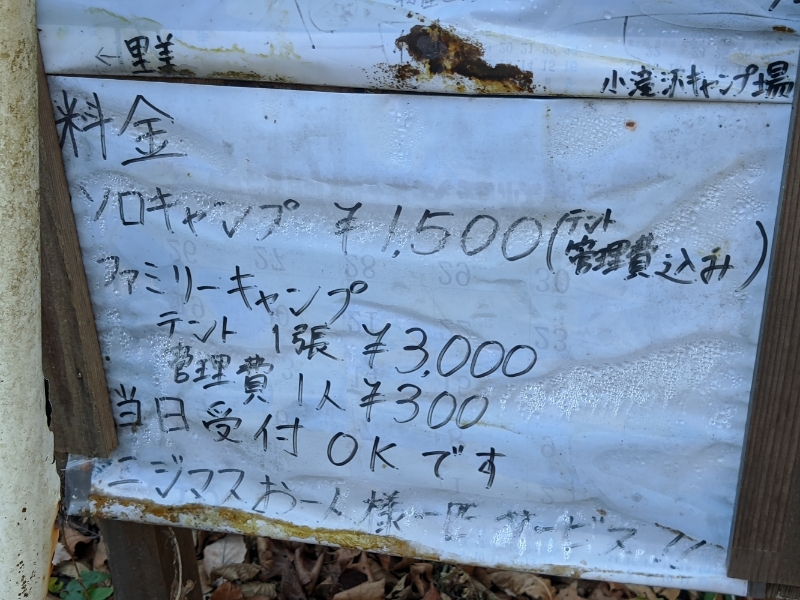 ←里美
小滝沢キャンプ場
料金
ソロキャンプ ¥1,500(テント管理費込み)
ファミリーキャンプ
テント 1張 ¥3,000
管理費 1人 ¥300
当日受付 OKです
ニジマスお一人様一匹サービス!!